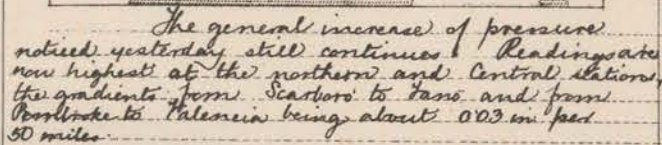 The general increase of pressure
noticed yesterday still continues. Readings are
now highest at the northern and Central stations,
the gradients from Scarboro' to Fanö and from
Pembroke to Valencia being about 0.03 in per
50 miles.